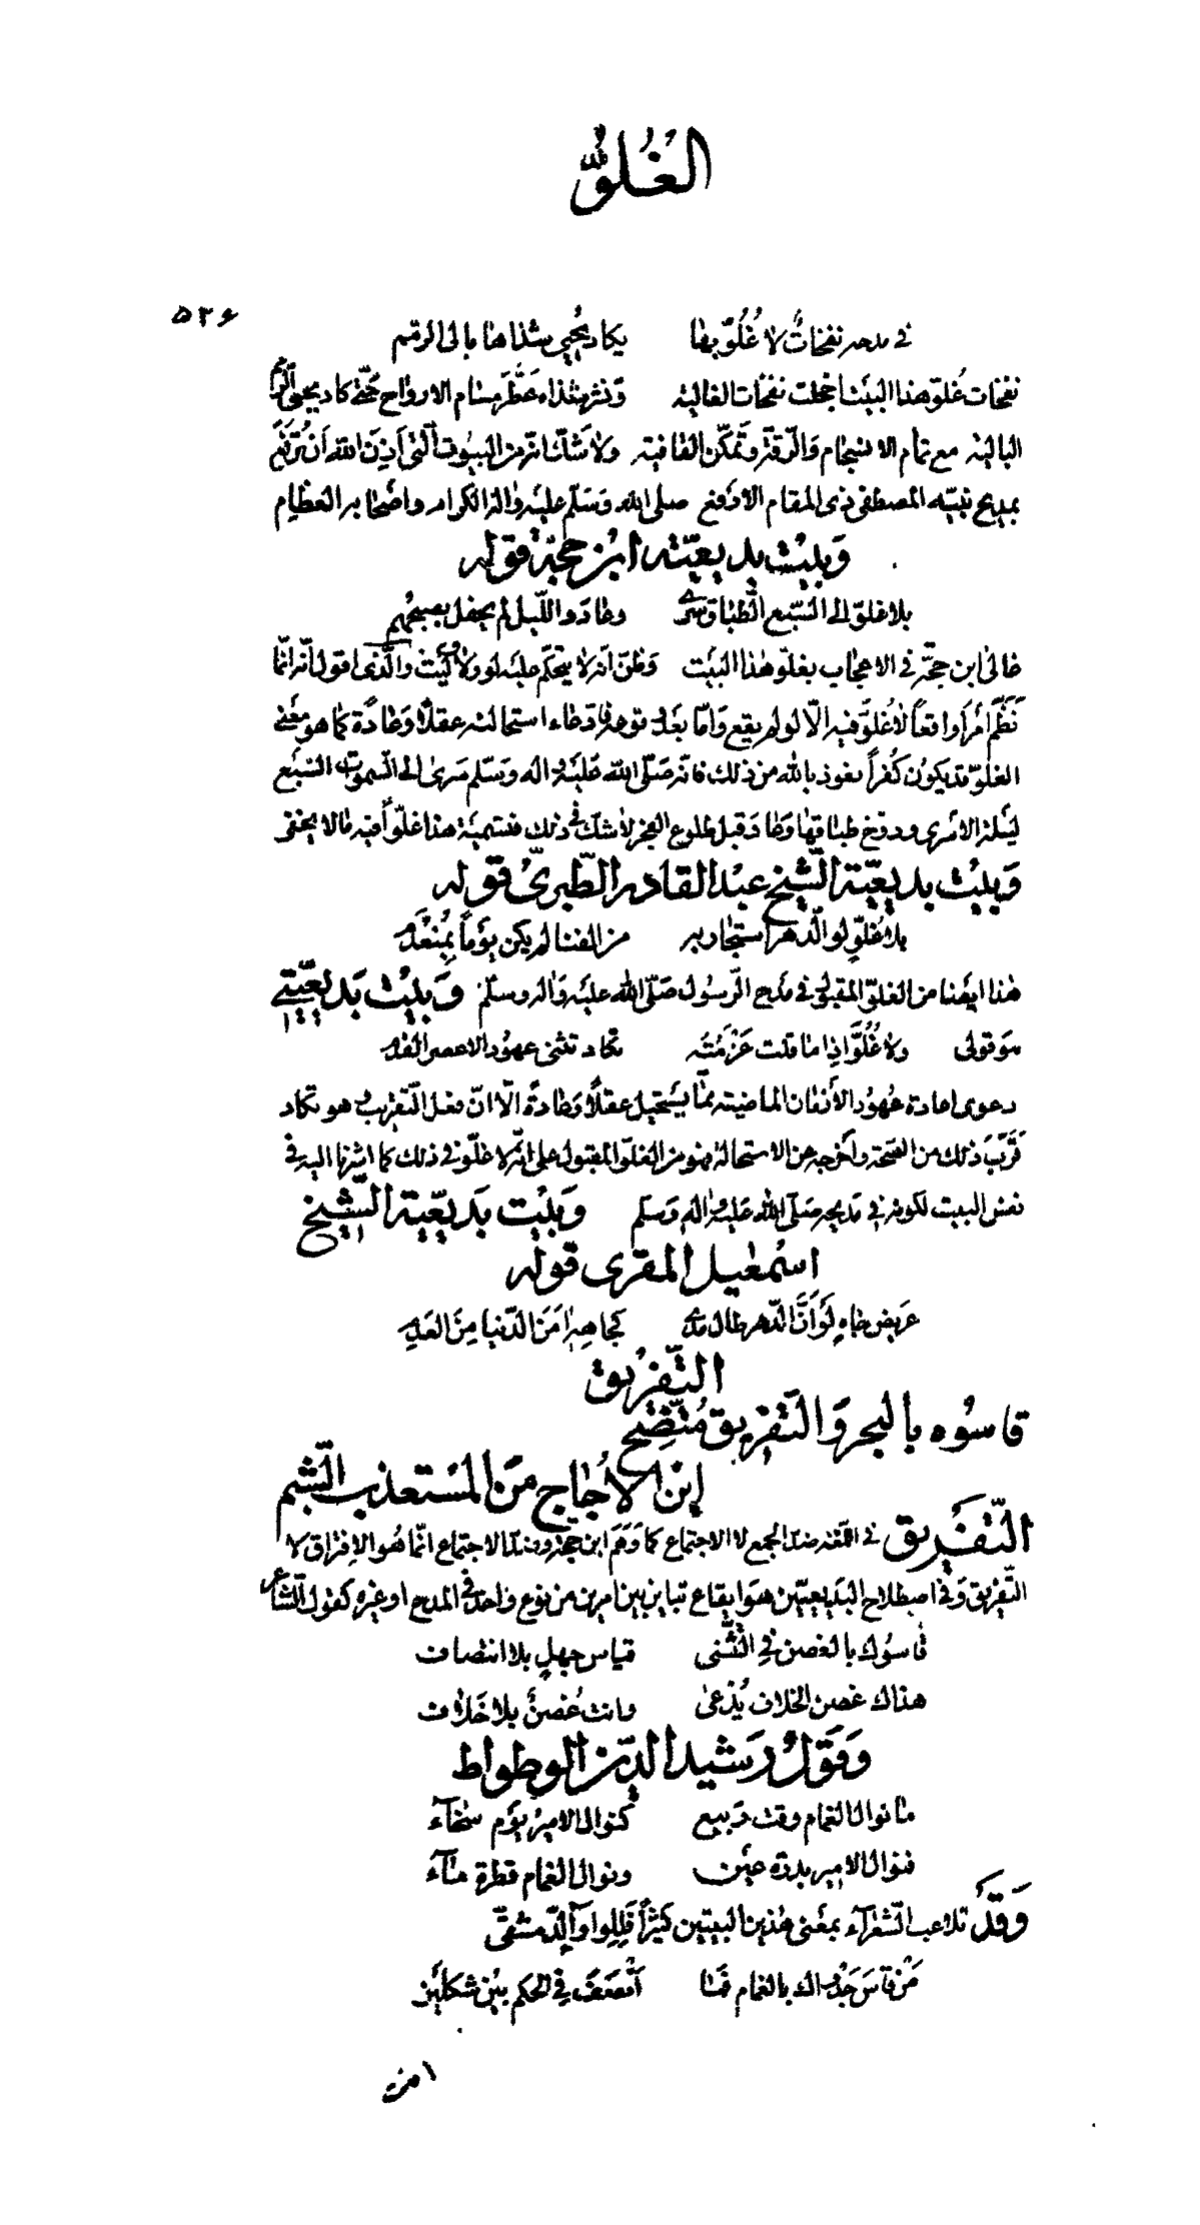 الغُلوّ
۵۳۶
في مدحه نفحاتٌ لا غُلُوَّ بها يكاد يُحيي شذاها بالى الرمم
نفحات غُلوّ هذا البيت اخجلت نفحات الغالية ونشر شذاه عَطَّر مشام الارواح حتّى كاد يحيى الرمم
البالية مع تمام الانسجام وَالرّقة وتمكّن القافية ولا شكّ انّه من البيوت الّتى اَذِنَ الله اَن تُرفَع
بمديح نبيّه المصطفى ذى المقام الارفع صلى الله وسَلّم عليه واله الكرام واصحابه العظام
وَبيتُ بديعيّته ابن حجّة قوله
بلا غلوّ الى السّبع الطّباق سَرى وعاد واللّيل لم يجفل بصبحهم
غالى ابن حجّة في الاعجاب بغلوّ هذا البيت وَظنّ انّه لا يتحكم عليه لو ولا ليت والّذى اقول انّه انّما
نَظَّمَ اَمراً واقعاً لا غُلوَّ فيه الّا لو لم يقع وَامّا بعد توهم ادعاء استحالته عقلاً وَعادةً كما هو معنى
الغلوّ قد يكون كُفراً نعوذ بالله من ذلك فانّه صَلّى الله عَليه واله وسَلّم سَرى الى السّموات السّبع
ليَلة الاسرى ودوّخ طباقها وَعاد قبل طلوع الفجر لا شكّ في ذلك فتسمية هذا غلوّاً فيه ما لا يخفى
وَبيتُ بديعيّة الشّيخ عبد القادر الطّبرىّ قوله
بلا غُلوٍّ لو الدّهر استجار به من الفنا لم يكن يوماً بمُنعَدم
هذا ايضا من الغلوّ المقبول في مدح الرّسول صَلّى الله عليه وَاله وسلّم وَبيتُ بَديعيّتى
هوَ قولى ولا غُلُوَّ اِذا ما قلت عَزمَتُه تكاد تثنى عهود الاعصر القدم
دعوى اعادة عُهوُد الأزمان الماضية ممّا يَستحيل عقلاً وَعادةً الّا انّ فعل التّقريب وهو تكاد
قَرَّبَ ذلك من الصّحة وَاَخرجه عن الاستحالة فهو من الغلوّ المقبول على انّه لا غلوّ في ذلك كما اشرنا اليه في
نفس البيت لكونه في مديحه صَلّى الله عَليه واله وَسَلّم وَبيت بَديعيّة الشّيخ
اسمعيل المقرى قوله
عَريض جاهٍ لَوَ اَنَّ الدّهر طال مدى كجاهه اَمَنَ الدّنيا مِنَ العَدم
التّفريق
قاسوُه بالبحر وَالتّفريق مُتّضح
اين الاُجاج من المستعذب الشّبم
التّفريق في اللّغة ضدّ الجمع لا الاجتماع كما وَهم ابن حجّة وضدّ الاجتماع انّما هُو الافتراق لا
التّفريق وَفي اصطلاح البَديعيّين هوَ ايقاع تباين بين امرين من نوع واحد في المدح او غيره كقول الشّاعر
قاسوُك بالغصن في التّثنّى قياس جهلٍ بلا انتصاف
هذاك غصن الخلاف يُدعى وانت غُصنٌ بلا خلاف
وَقولُ رَشيد الدّين الوطواط
ما نوال الغمام وقت رَبيع كنوال الامير يوَم سخآء
فنوال الامير بدرة عين ونوال الغمام قطرة مآء
وَقَد تلاعب الشّعرآء بمعنى هذين البيتين كثيراً
مَن قاسَ جَدواك بالغمام فما اَنصَفَ في الحكم بيَن شكلَين